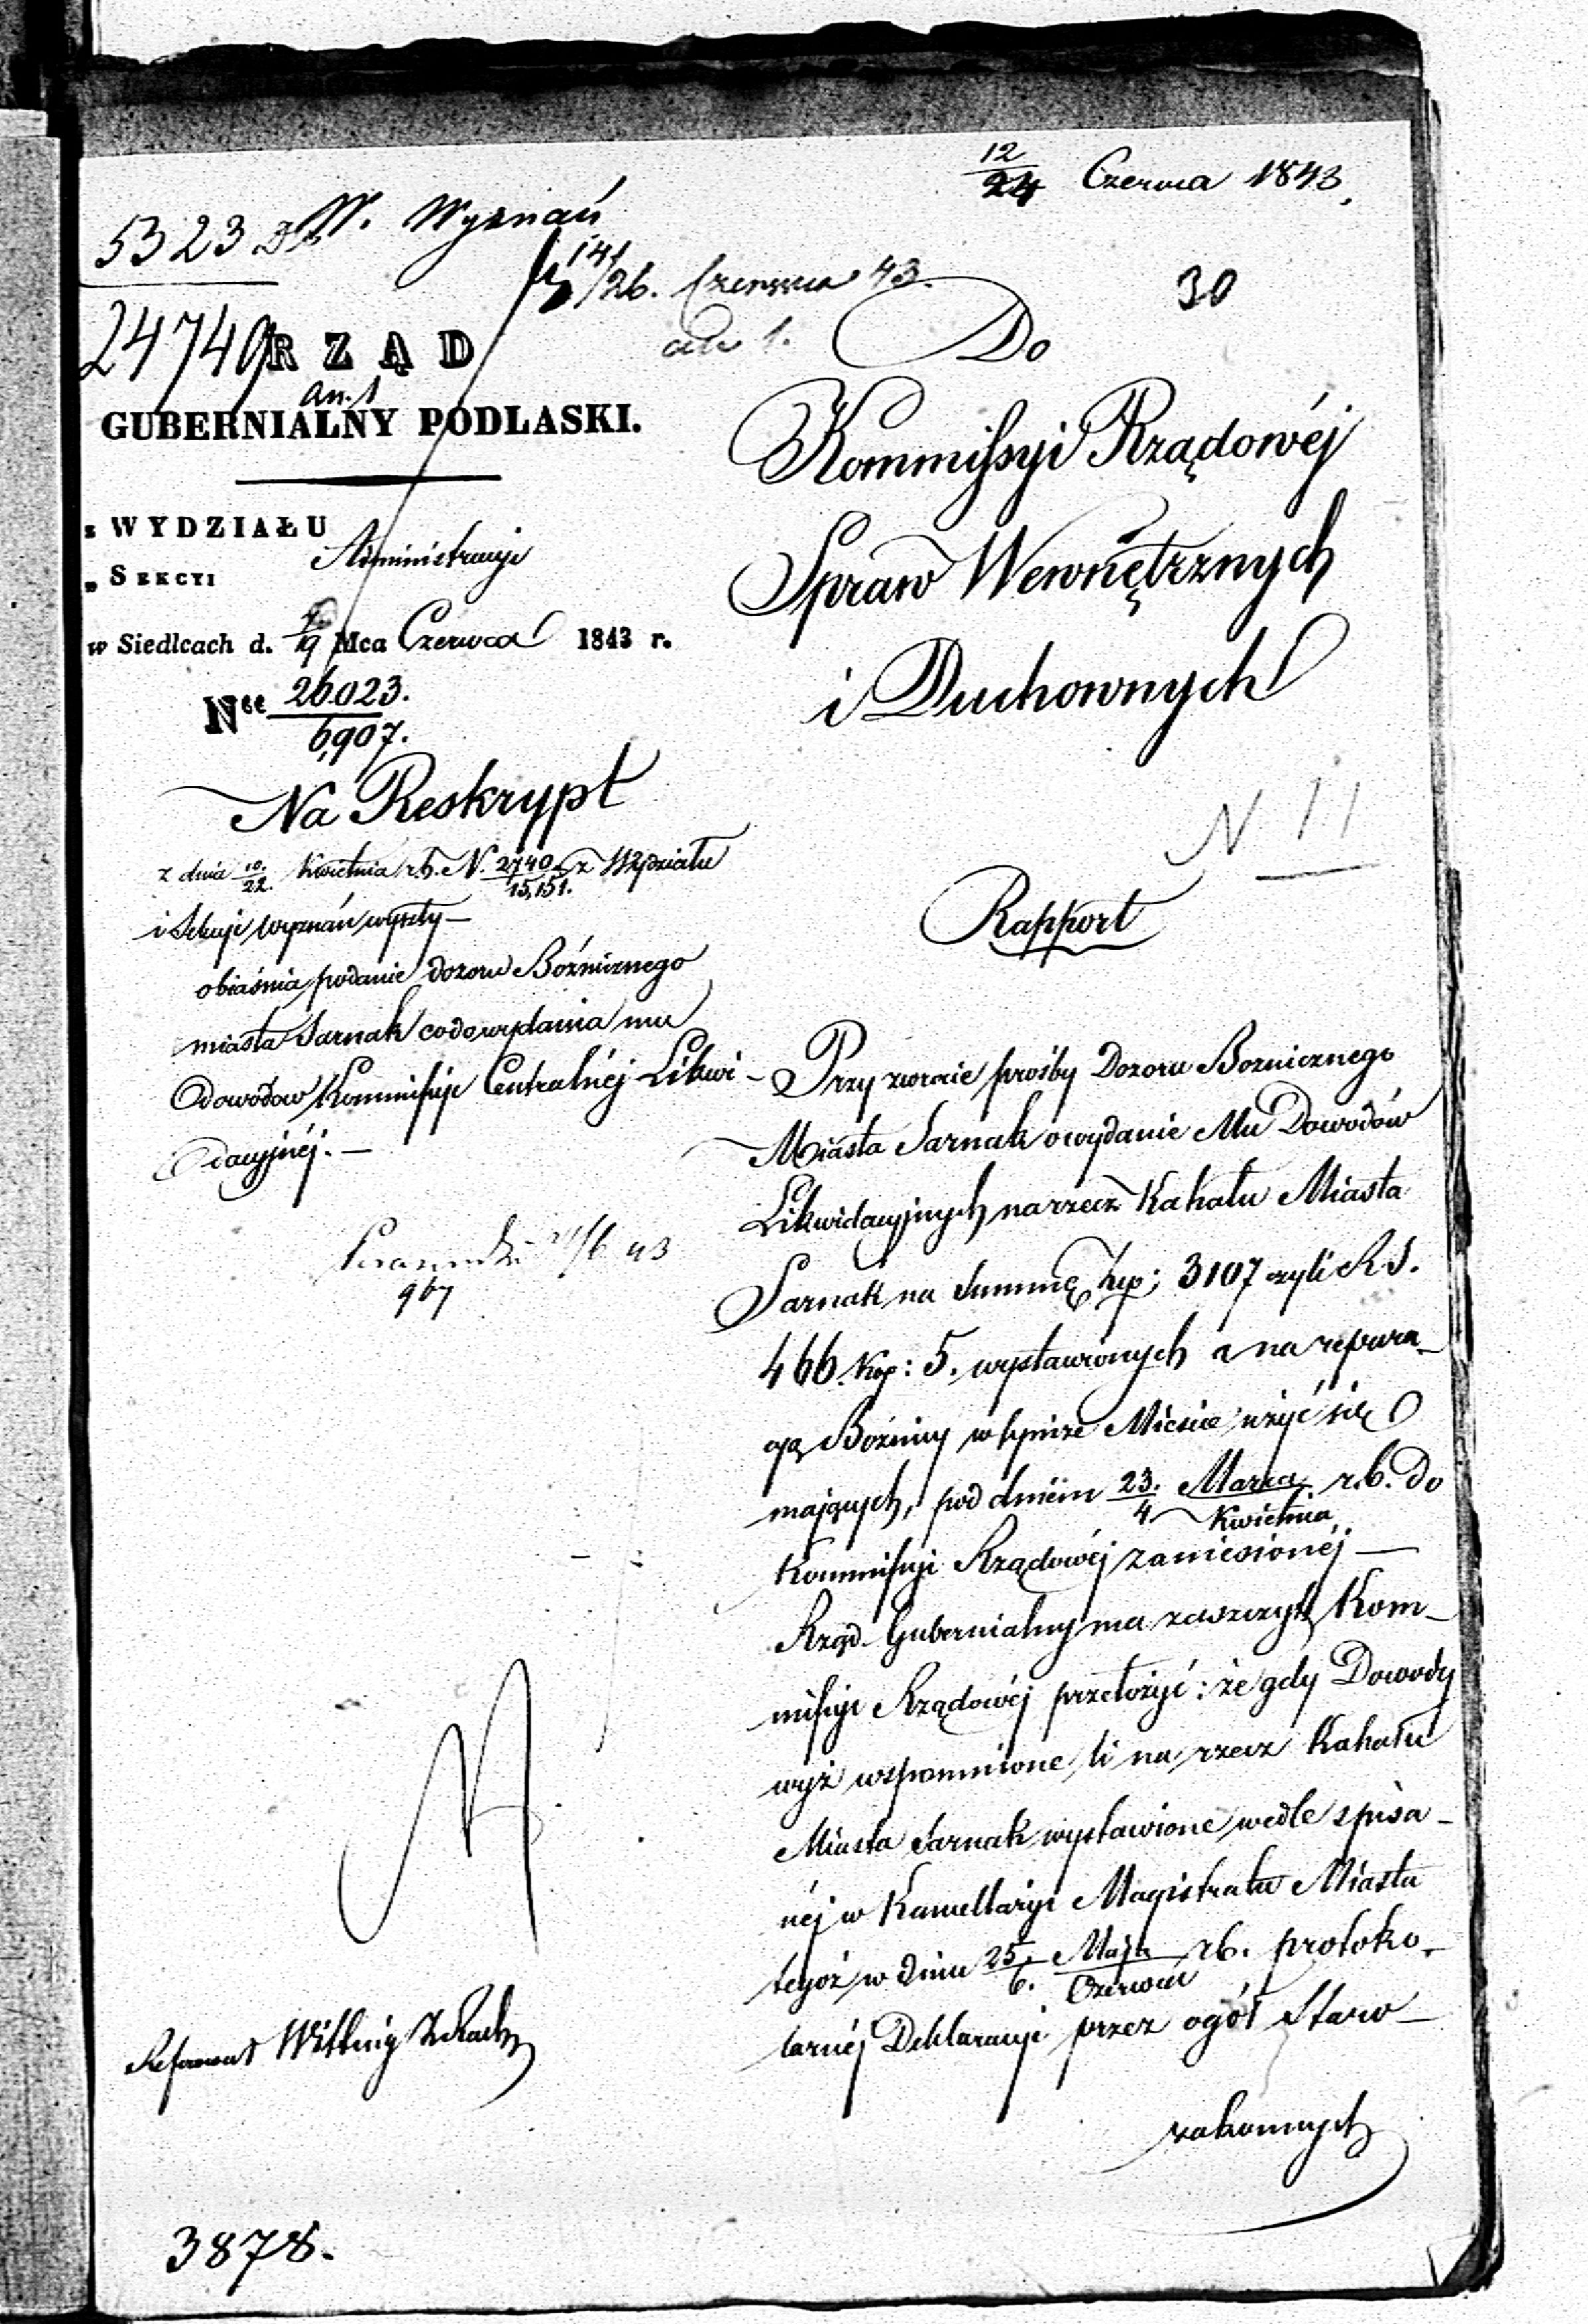 12/24 Czerwca 1843
5323
W. Wyznań
14/26. Czerwca 43.
an 1.
30
24749
an. 1
RZĄD
GUBERNIALNY PODLASKI.
z WYDZIAŁU
Administracyi
„ SEKCYI
w Siedlcach d. 7/19 Mca Czerwca 1843 r.
Nee 26023./6,907.
Na Reskrypt
z dnia 10./22. Kwietnia r.b. N. 2740/15,151. z Wydziału
i Sekcyi wyznań wyszły –
obiaśnia podanie dozoru Bóżnicznego
miasta Sarnak co do wydania mu
dowodow Kommissyi Centralnéj Likwi-
dacyjnéj. –
967
Refernt Wittnig
3878.
Do
Kommissyi Rządowéj
Spraw Wewnętrznych
i Duchownych
N 11
Rapport
Przy zwrocie prośby Dozoru Boznicznego
Miasta Sarnak o wydanie Mu Dowodów
Likwidacyjnych na rzecz Kahału Miasta
Sarnak na Summę złp: 3107 czyli R S.
466 kop: 5. wystawionych a na repera-
cyą Bóźnicy w tymże Mieście użyć się
mających, pod dniem 23. Marca/4 Kwietnia r.b. do
Kommissyi Rządowéj zaniesionéj –
Rząd Gubernialny ma zaszczyt Kom-
missyi Rządowéj przełożyć: że gdy Dowody
wyż wspomnione li na rzecz Kahału
Miasta Sarnak wystawione wedle spisa-
néj w Kancellaryi Magistratu Miasta
tegoż w dniu 25. Maja/6. Czerwca r.b. protoko-
larnéj Deklaracyi przez ogół Staro-
zakonnych